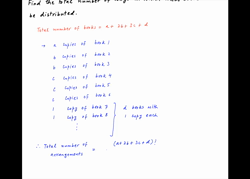 Find the total number of ways in
be distributed.
Total number of books = a + 2b + 3c + d
→ a copies of book 1
b copies of book 2
b copies of book 3
c copies of book 4
c copies of book 5
c copies of book 6
1 copy of book 7
1 copy of book 8
d books with
1 copy each
∴ Total number of
arrangements = (a+2b+3c+d)!